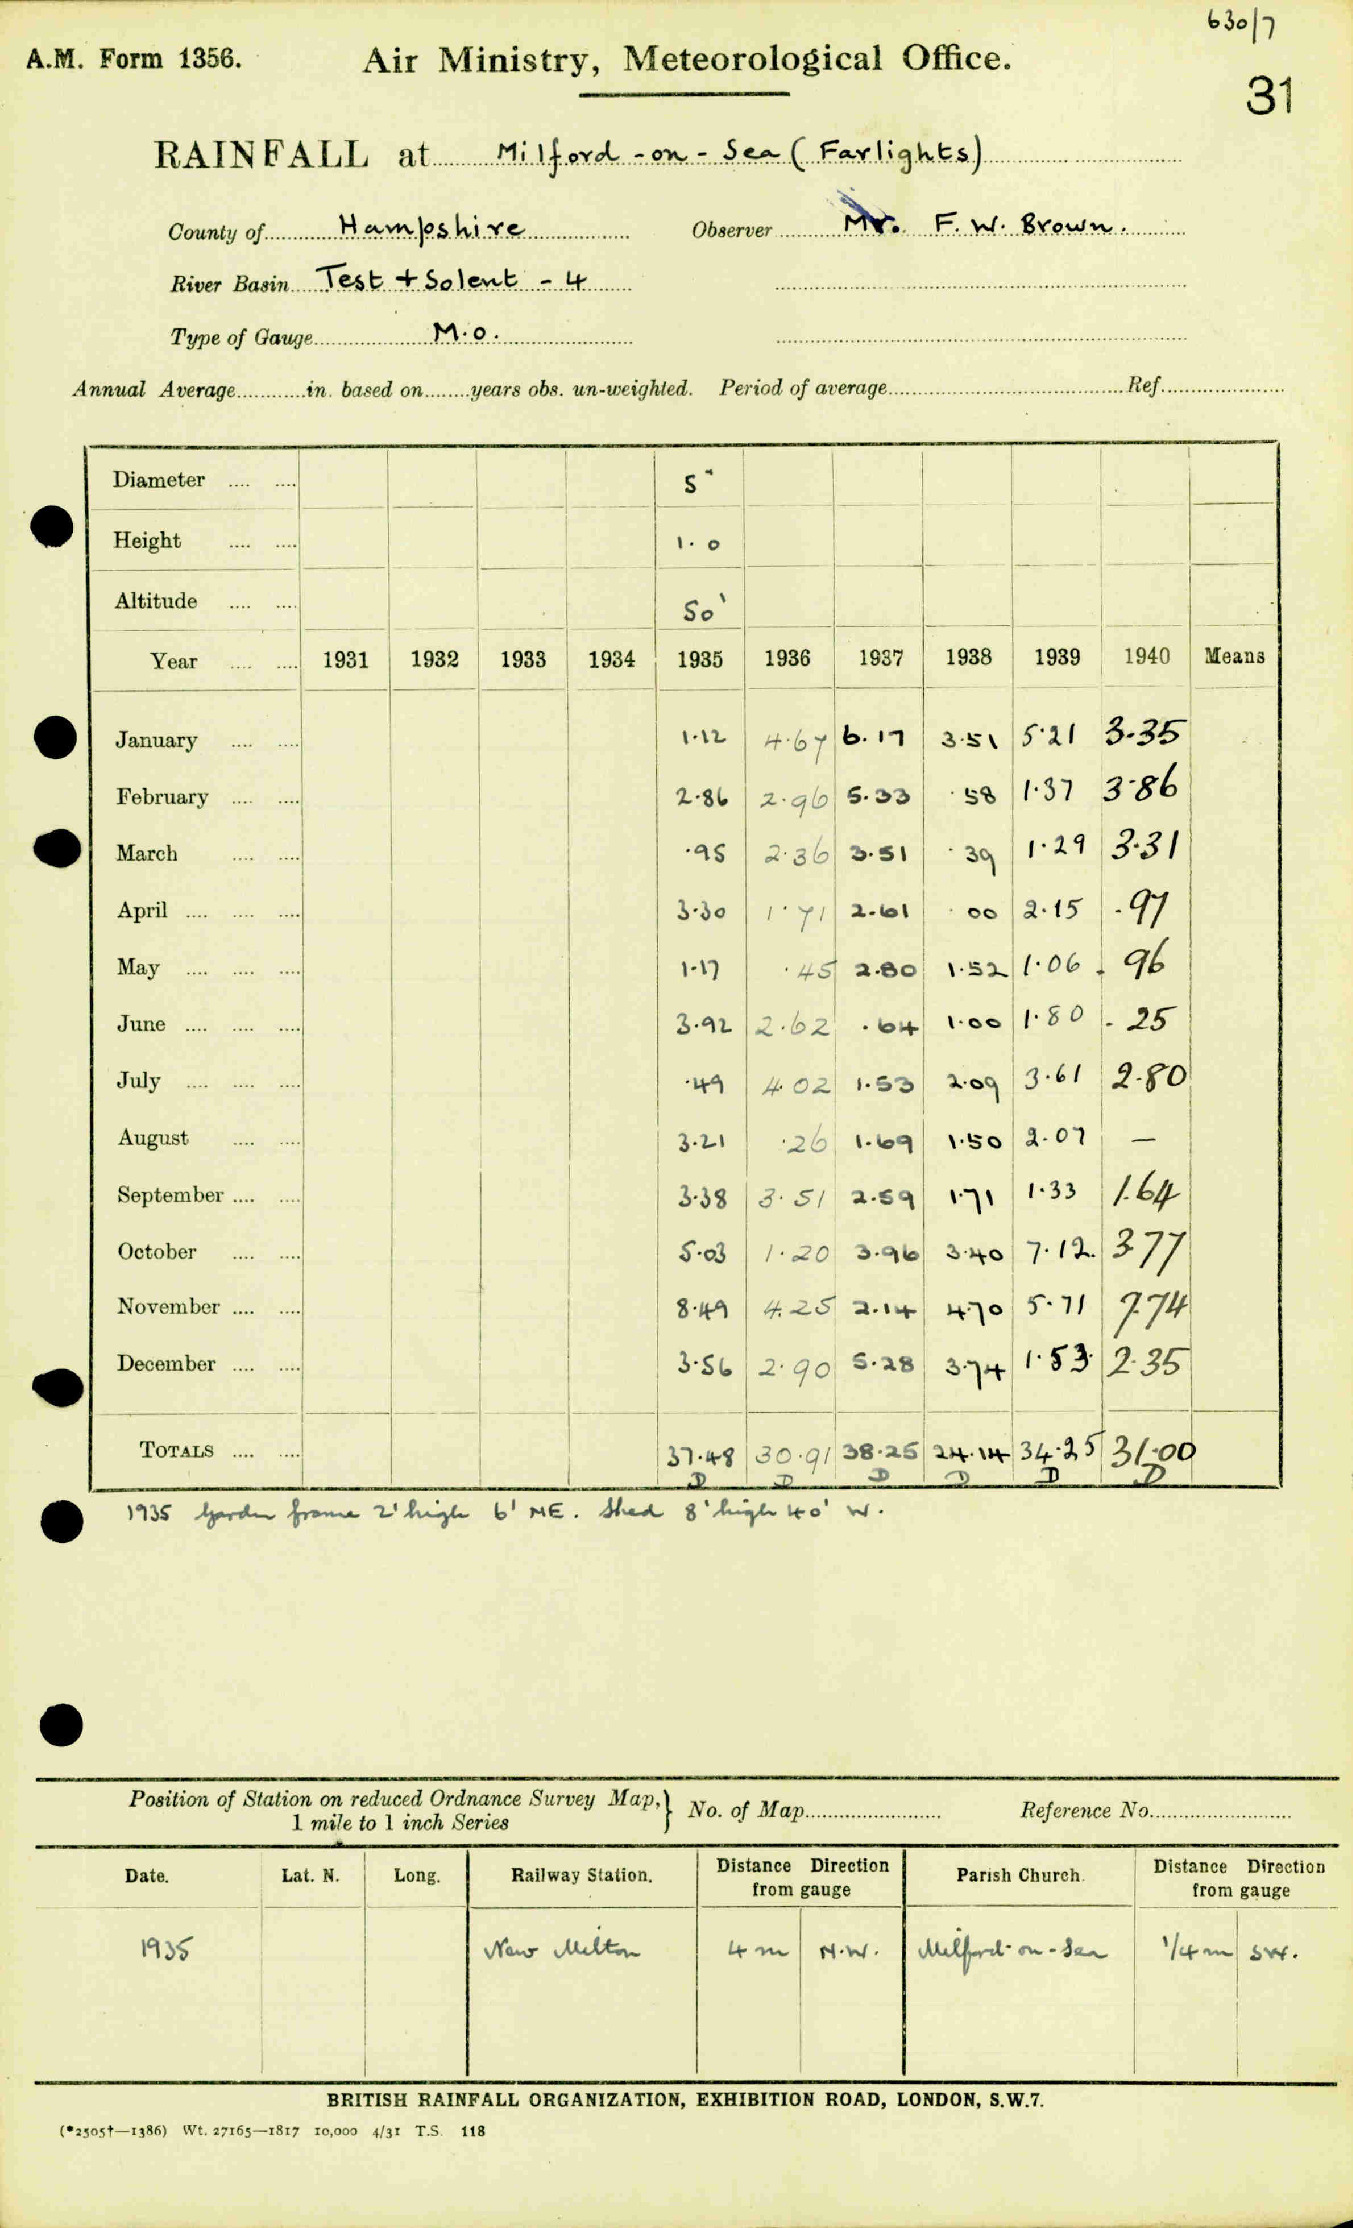 630/7
A.M. Form 1356. Air Ministry, Meteorological Office.
31
RAINFALL at Milford-on-Sea (Farlights)
County of Hampshire Observer Mr. F. W. Brown.
River Basin Test + Solent - 4
Type of Gauge M.O.
Annual Average in. based on years obs. un-weighted. Period of average Ref.
Diameter 5"
Height 1.0
Altitude 50'
Year 1931 1932 1933 1934 1935 1936 1937 1938 1939 1940 Means
January 1.12 4.67 6.17 3.51 5.21 3.35
February 2.86 2.96 5.33 .58 1.37 3.86
March .95 2.36 3.51 .39 1.29 3.31
April 3.30 1.71 2.61 .00 2.15 .97
May 1.17 .45 2.80 1.52 1.06 .96
June 3.92 2.62 .64 1.00 1.80 .25
July .49 4.02 1.53 2.09 3.61 2.80
August 3.21 .26 1.69 1.50 2.07 —
September 3.38 3.51 2.59 1.71 1.33 1.64
October 5.03 1.20 3.96 3.40 7.12 3.77
November 8.49 4.25 2.14 4.70 5.71 7.74
December 3.56 2.90 5.28 3.74 1.53 2.35
TOTALS 37.48 30.91 38.25 24.14 34.25 31.00
D D D D D D
1935 Garden frame 2' high 6' NE. Shed 8' high 40' W.
Position of Station on reduced Ordnance Survey Map, } No. of Map Reference No.
1 mile to 1 inch Series
Date. Lat. N. Long. Railway Station. Distance Direction from gauge Parish Church. Distance Direction from gauge
1935 New Milton 4 m N.W. Milford-on-Sea 1/4 m SW.
BRITISH RAINFALL ORGANIZATION, EXHIBITION ROAD, LONDON, S.W.7.
(*2505†—1386) Wt. 27165—1817 10,000 4/31 T.S. 118